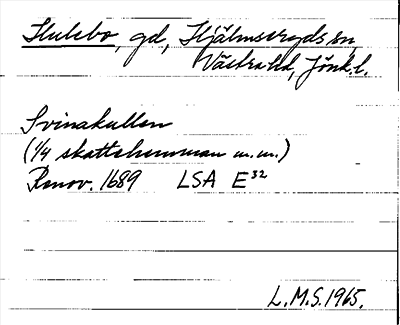 Hulebo, gd, Hjälmseryds sn,
Västra hd, Jönk. l.
Svinakullen
(1/4 skattehemman m.m.)
Renov. 1689 LSA E³²
L.M.S. 1965.